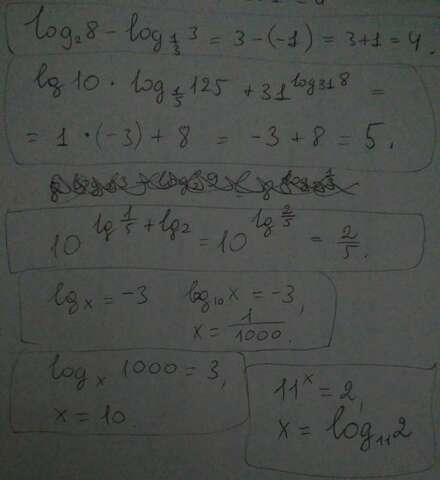 log₂8 - log_{1/3}3 = 3-(-1) = 3+1 = 4.
lg10 · log_{1/5}125 + 31^{log₃₁8} =
= 1 · (-3) + 8 = -3 + 8 = 5.
10^{lg 1/5 + lg2} = 10^{lg 2/5} = 2/5.
lgx = -3 log₁₀x = -3,
x = 1/1000.
logₓ 1000 = 3,
x = 10.
11ˣ = 2,
x = log₁₁2